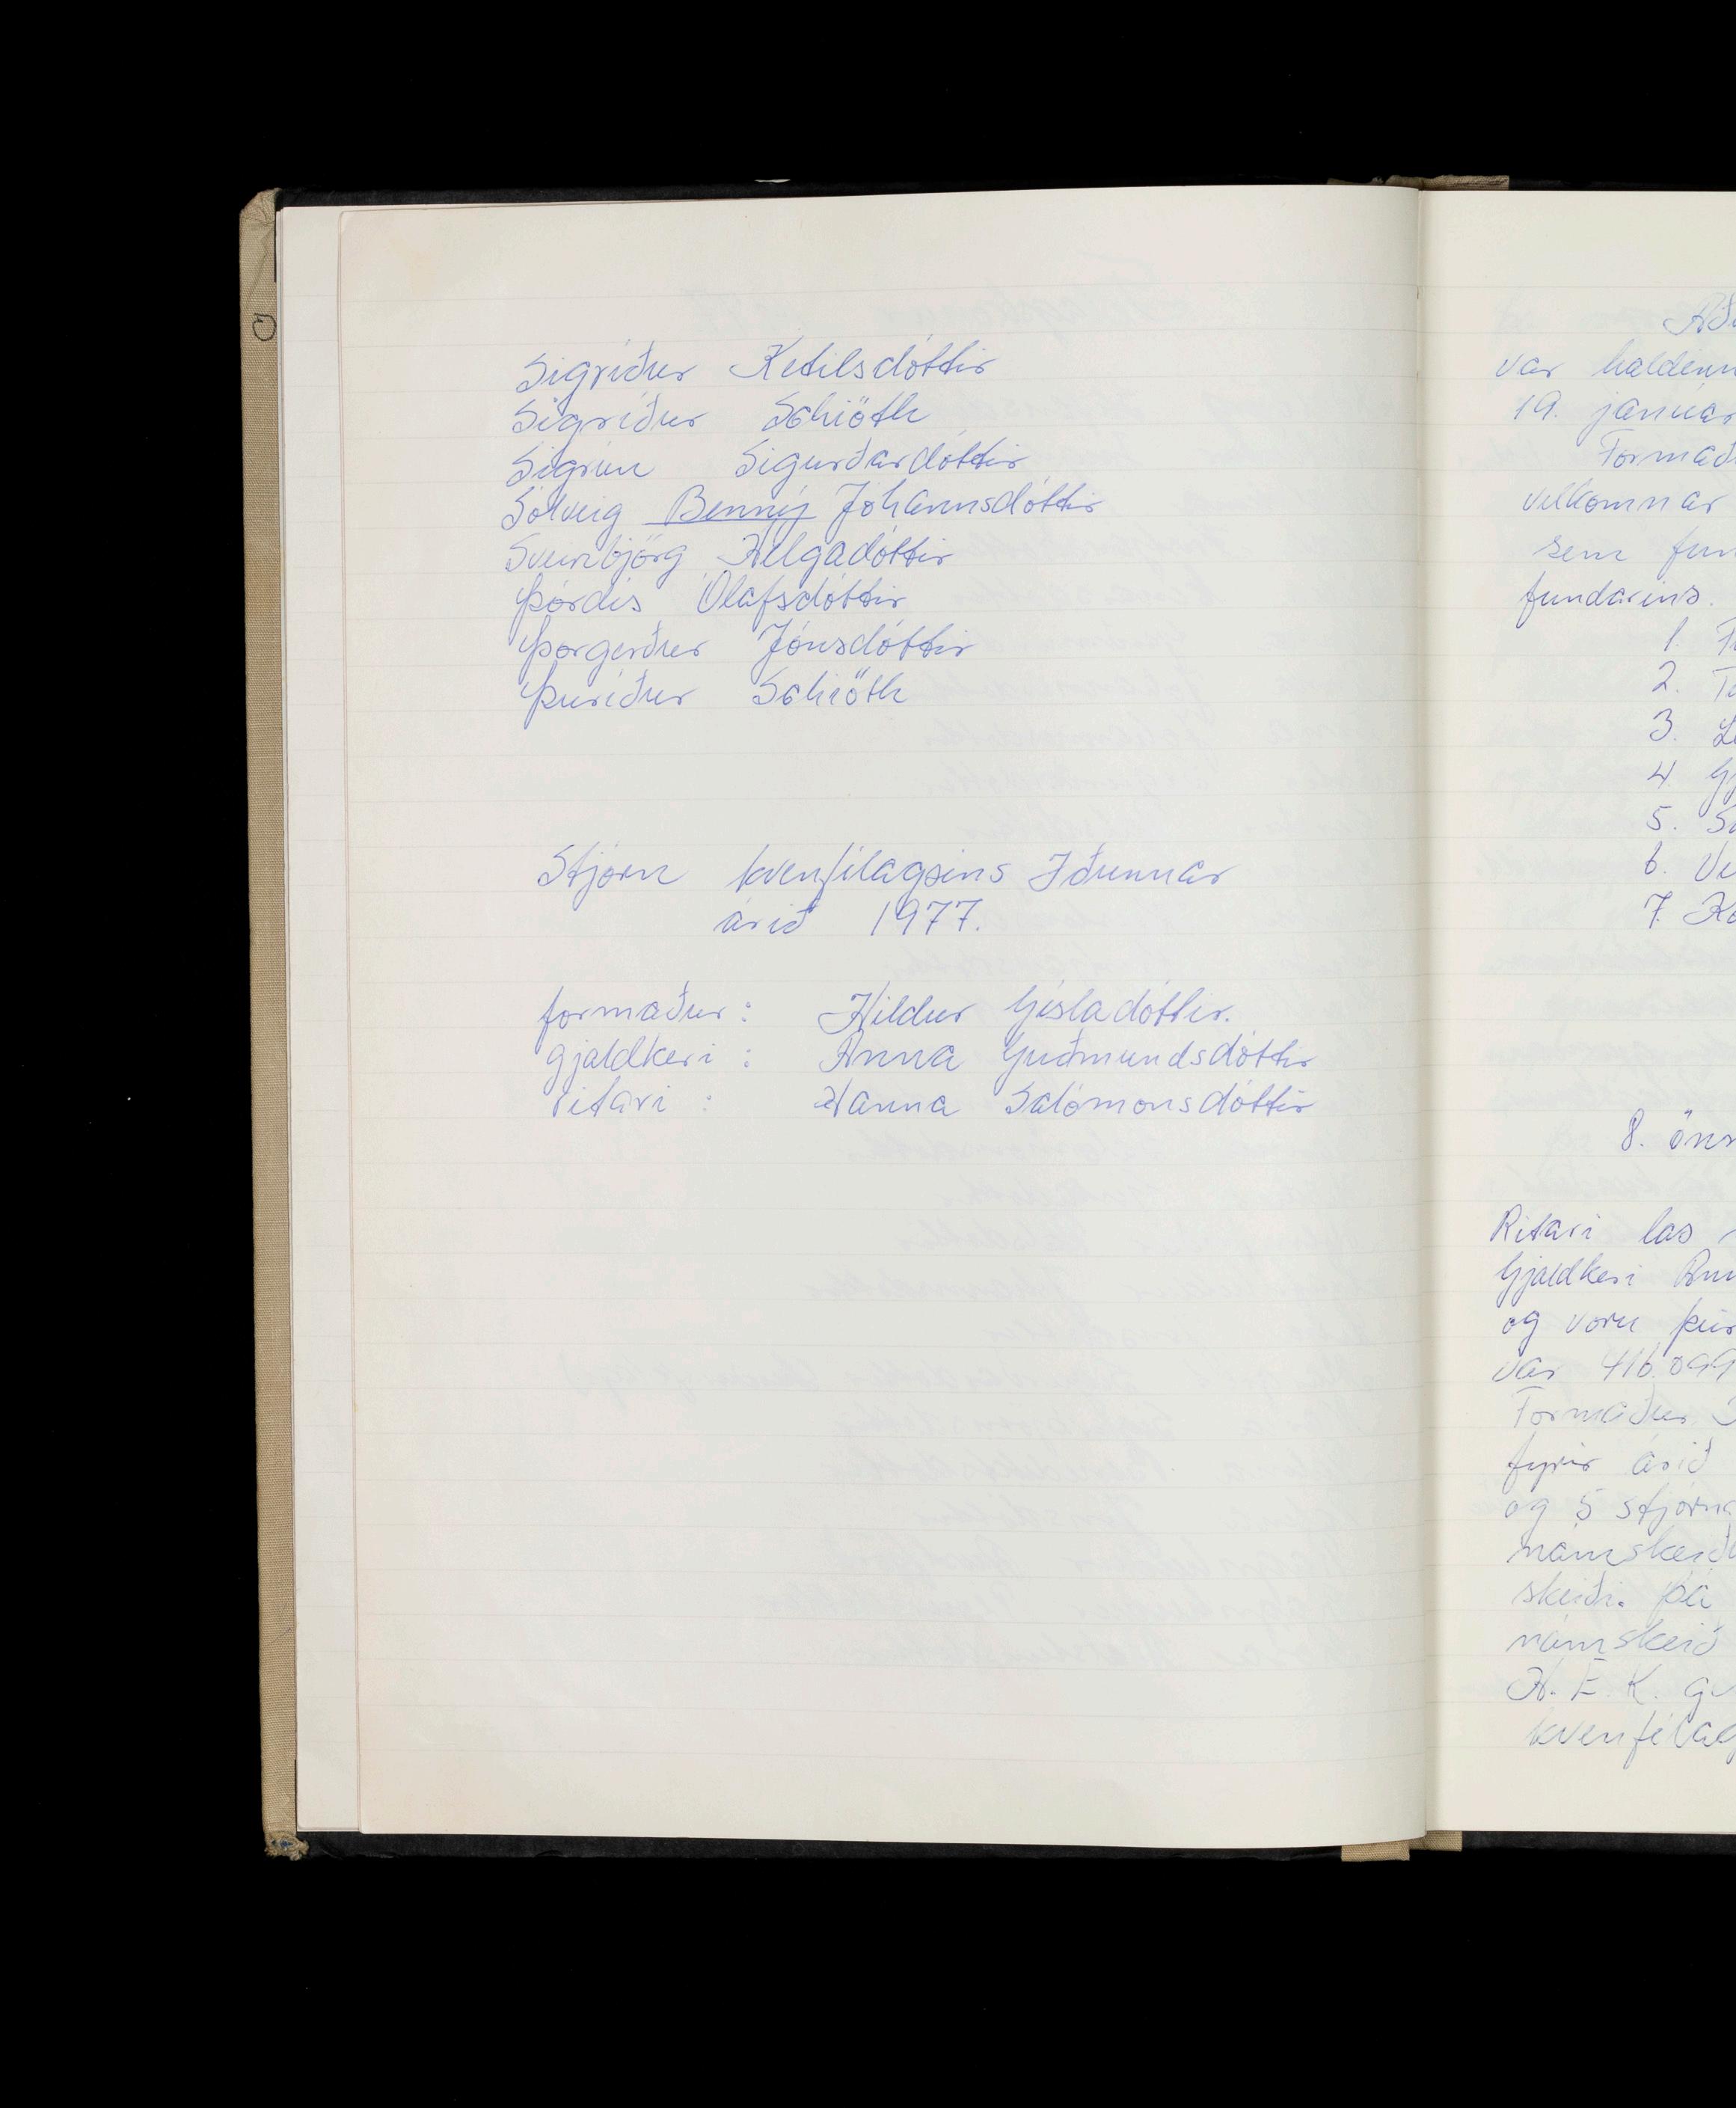 Sigríður Ketilsdóttir
Sigríður Schiöth
Sigrún Sigurðardóttir
Sólveig Benný Jóhannsdóttir
Sveinbjörg Helgadóttir
Þórdís Ólafsdóttir
Þorgerður Jónsdóttir
Þuríður Schiöth
Stjórn kvenfélagsins Iðunnar
árið 1977.
formaður: Hildur Gísladóttir.
gjaldkeri: Anna Guðmundsdóttir
ritari: Hanna Salómonsdóttir
var haldinn
19. janúar
velkomnar
sem fun
fundarins.
1.
2.
3.
4.
5.
6.
7.
8.
Ritari las
Gjaldkeri
og voru þeir
var 416.099
Formaður
fyrir árið
og 5
skeiði. Þá
námskeið
H.E.K.